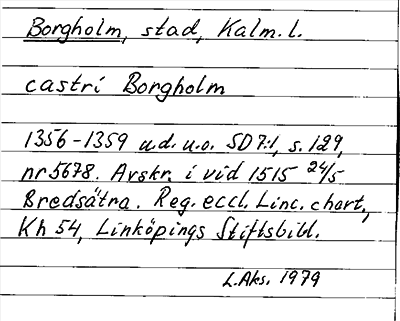 Borgholm, stad, Kalm. l.
castri Borgholm
1356-1359 u.d. u.o. SD 7:1, s. 129,
nr 5678. Avskr. i vid 1515 24/5
Bredsätra. Reg. eccl. Linc. chart.,
Kh 54, Linköpings Stiftsbibl.
L.Aks. 1979